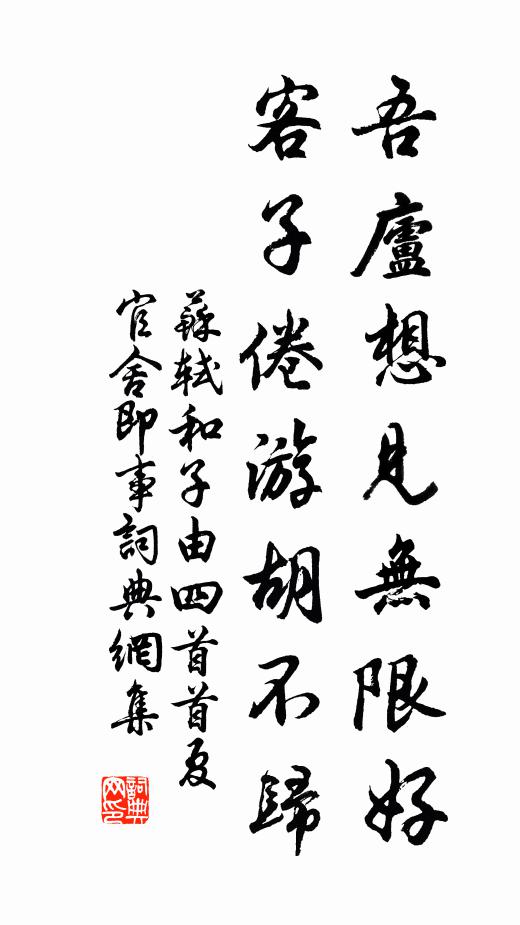 吾廬想見無限好
客子倦游胡不歸
蘇軾和子由四首首夏
官舍即事詞典網集
詞典
网印